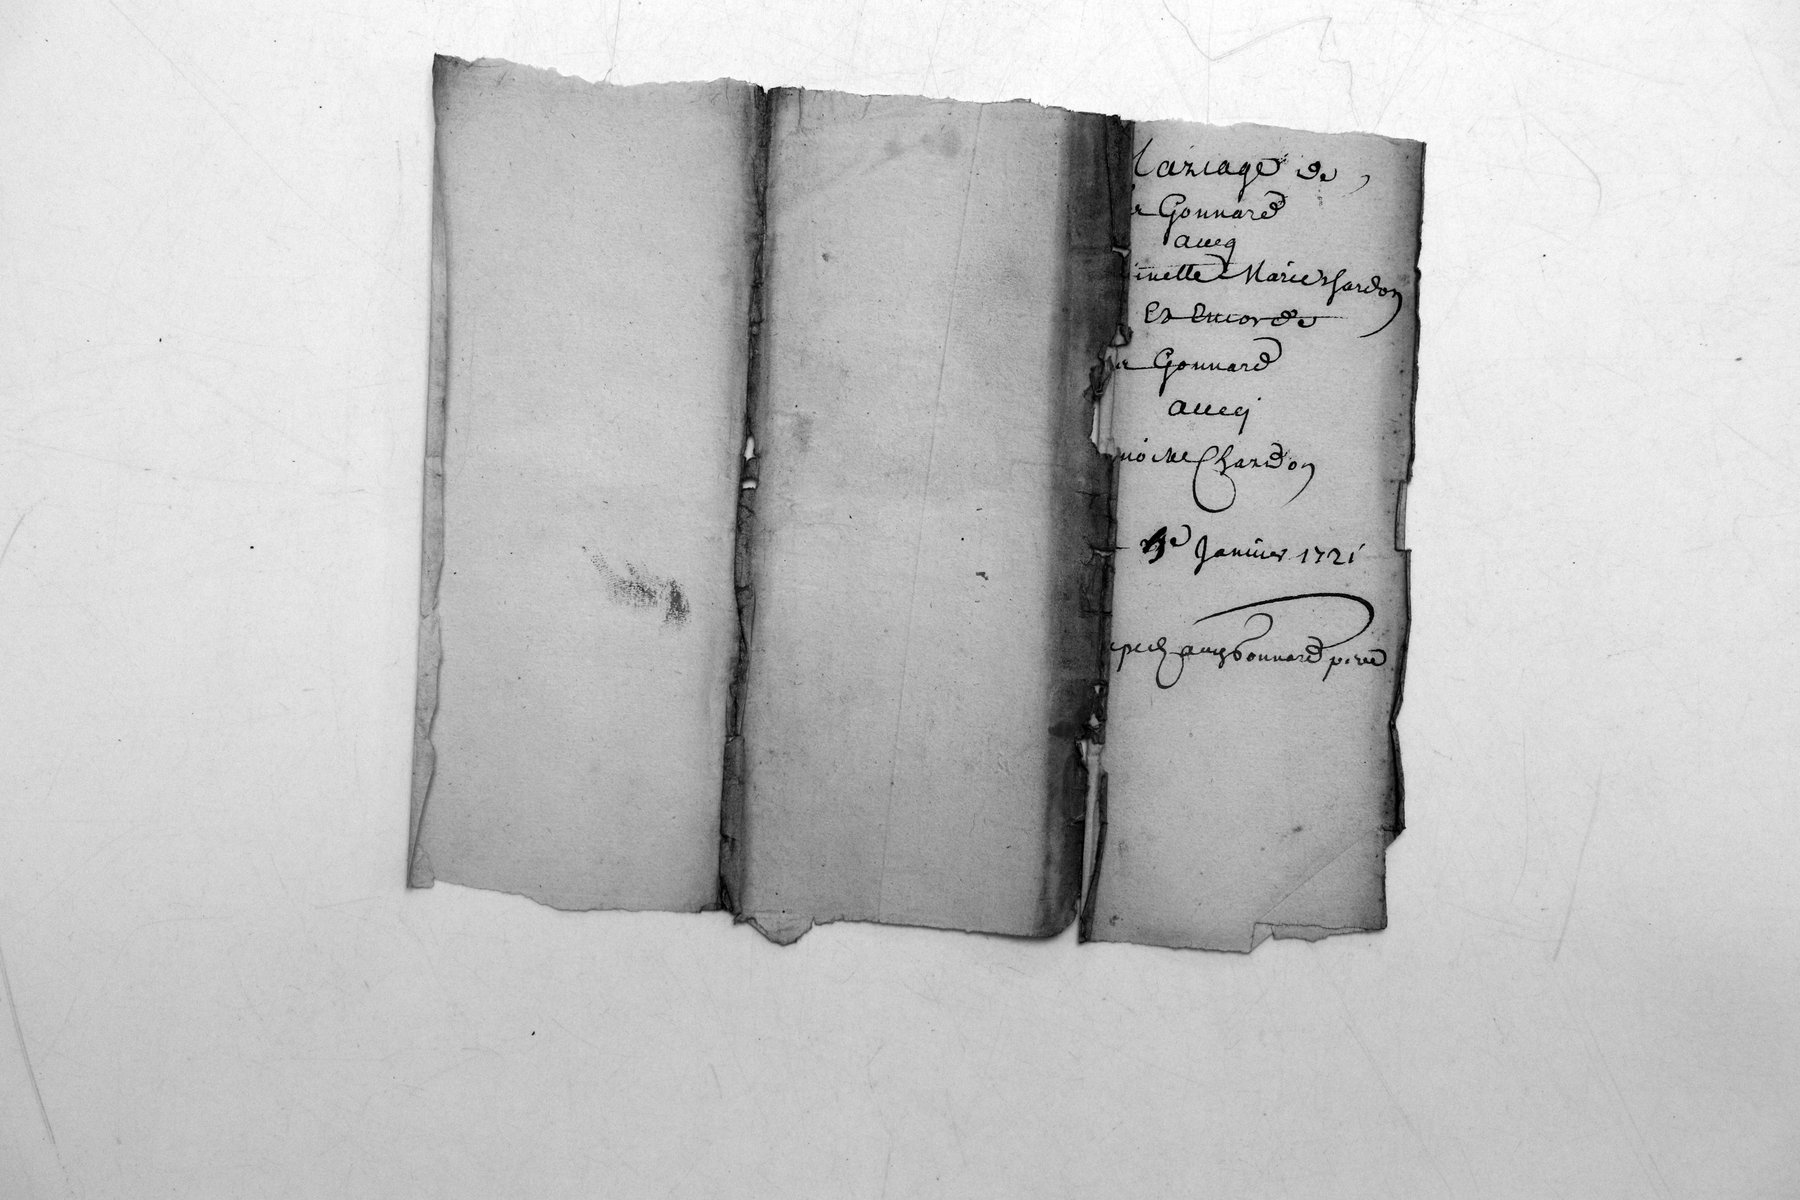 Mariage de
Gonnard
aueq
inette Marie Chardon
Et Encor de
Gonnard
auecq
Chardon
Januier 1721
Gonnard pere